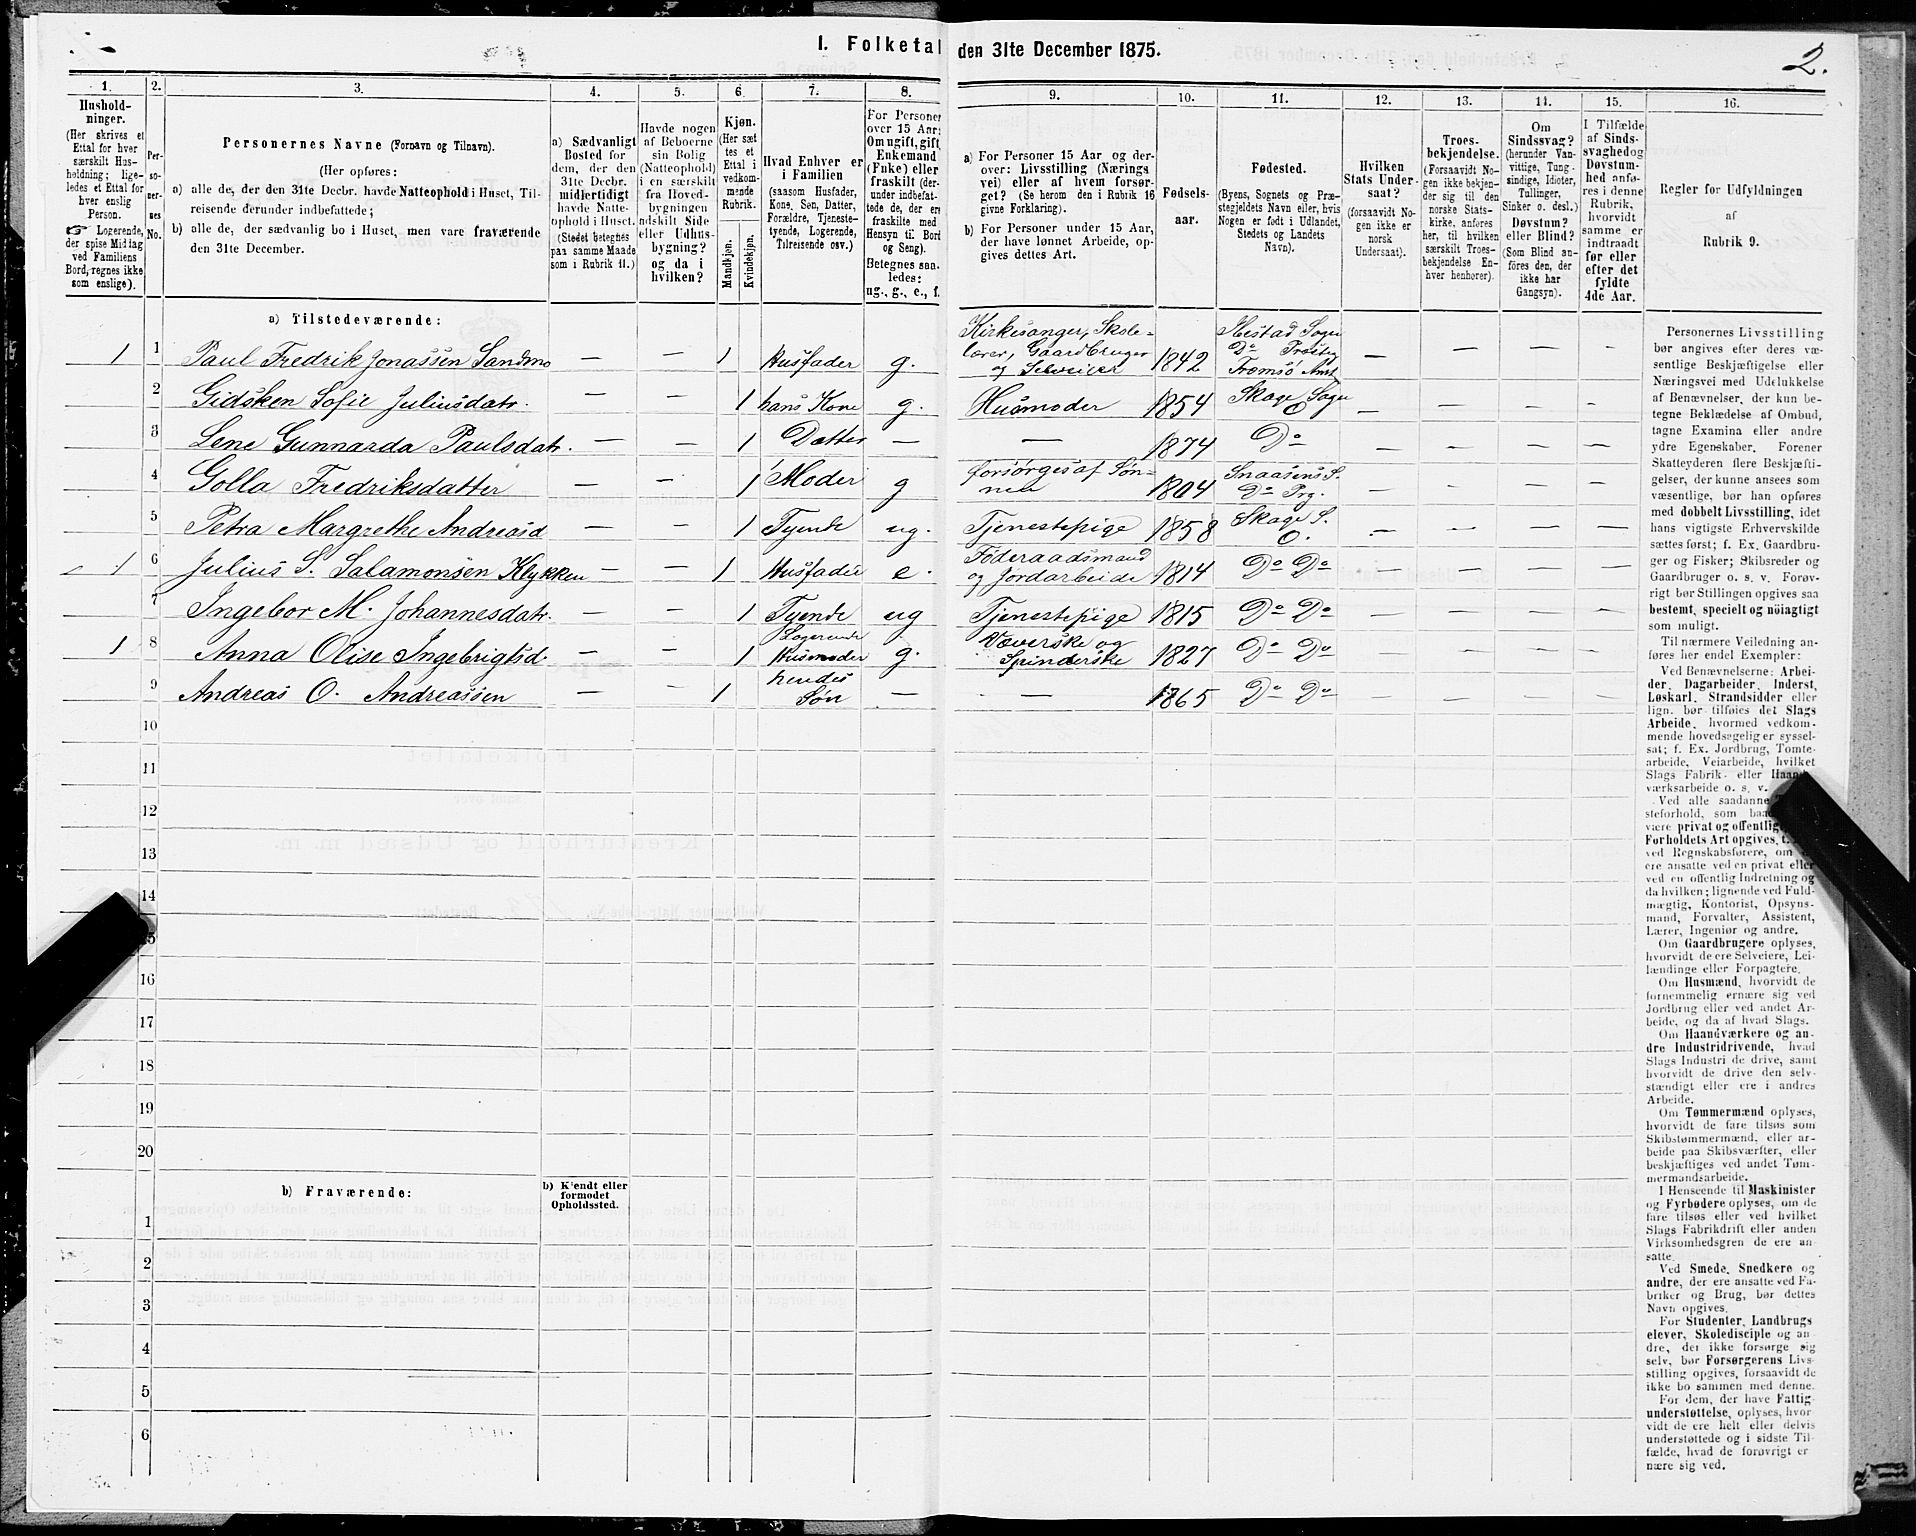 I. Folketal den 31te December 1875.
2.
1.
Hushold-
ninger.
(Her skrives et
Ettal for hver
særskilt Hus-
holdning; lige-
ledes et Ettal for
hver enslig
Person.
☞ Logerende,
der spise Middag
ved Familiens
Bord, regnes ikke
som enslige).
2.
Per-
so-
ner-
nes
No.
3.
Personernes Navne (Fornavn og Tilnavn).
(Her opføres:
a) alle de, der den 31te Decbr. havde Natteophold i Huset, Til-
reisende derunder indbefattede;
b) alle de, der sædvanlig bo i Huset, men vare fraværende
den 31te December.
4.
a) Sædvanligt
Bosted for
dem, der den
31te Decbr.
midlertidigt
havde Natte-
ophold i Huset.
(Stedet betegnes
paa samme Maade
som i Rubrik 11.)
5.
Havde nogen
af Beboerne
sin Bolig
(Natteophold)
i en særskilt
fra Hoved-
bygningen
adskilt Side
eller Udhus-
bygning?
og da i
hvilken?
6.
Kjøn.
(Her sæt
tes et
Ettal i
vedkom-
mende
Rubrik.
Mandkjøn.
Kvindekjøn.
7.
Hvad Enhver er
i Familien
(saasom Husfader,
Kone, Søn, Datter,
Forældre, Tjeneste-
tyende, Logerende,
Tilreisende osv.)
8.
For Personer
over 15 Aar:
Om ugift, gift,
Enkemand
(Enke) eller
fraskilt (der-
under indbefat-
tede de, der ere
fraskilte med
Hensyn til Bord
og Seng).
Betegnes saa-
ledes:
ug., g., e., f.
9.
a) For Personer 15 Aar og der-
over: Livsstilling (Nærings
vei) eller af hvem forsør-
get? (Se herom den i Rubrik 16
givne Forklaring).
b) For Personer under 15 Aar,
der have lønnet Arbeide, op-
gives dettes Art.
10.
Fødsels-
aar.
11.
Fødested.
(Byens, Sognets og Præ-
stegjeldets Navn eller, hvis
Nogen er født i Udlandet,
Stedets og Landets
Navn).
12.
Hvilken
Stats Under-
saat?
(forsaavidt No-
gen ikke er
norsk
Undersaat).
13.
Troes-
bekjendelse.
(Forsaavidt No-
gen ikke bekjen-
der sig til den
norske Stats-
kirke, anføres
her, til hvilken
særskilt Troes-
bekjendelse En-
hver henhører).
14.
Om
Sindssvag?
(herunder Van-
vittige, Tung-
sindige, Idioter,
Tullinger,
Sinker o. desl.)
Døvstum?
eller Blind?
(Som Blind an-
føres den, der
ikke har
Gangsyn).
15.
I Tilfælde
af Sinds-
svaghed og
Døvstum-
hed anfø-
res i denne
Rubrik,
hvorvidt
samme er
indtraadt
før eller
efter det
fyldte
4de Aar.
16.
Regler for Udfyldningen
af
Rubrik 9.
a) Tilstedeværende:
1 1 Paul Fredrik Jonassen Sandmo — — 1 Husfader g. Kirkesanger, Skole-
lærer, Gaardbruger
og Selveier 1842 Ibestad Sogn
Do Præsteg
Tromsö Amt — — — —
2 Gidsken Sofie Juliusdatr. 1 hans Kone g. Husmoder 1854 Skage Sogn
O — — — —
3 Lene Gunnarda Paulsdatr. — — 1 Datter — — 1874 Do
4 Golla Fredriksdatter — — 1 Moder g forsørges af Søn-
nen 1804 Snaasens S.
Do Prg. — — — —
5 Petra Margrethe Andreasd — — 1 Tyende ug. Tjenestepige 1858 Skage S.
O. — — — —
1 6 Julius S. Salamonsen Klykken — — 1 Husfader e. Föderaadsmand
og Jordarbeide 1814 Do Do
7 Ingebor M. Johannesdatr. — — 1 Tyende ug Tjenestepige 1815 Do Do — — — —
1 8 Anna Olise Ingebrigtsd. — — 1 Logerende
Husmoder g. Væverske og
Spinderske 1827 Do Do — — — —
9 Andreas O. Andreassen — — 1 hendes
Søn — — 1865 Do Do — — — —
10
11
12
13
14
15
16
17
18
19
20
b) Fraværende:
b) Kjendt eller
formodet
Opholdssted.
1
2
3
4
5
6
Personernes Livsstilling
bør angives efter deres væ-
sentlige Beskjæftigelse eller
Næringsvei med Udelukkelse
af Benævnelser, der kun be-
tegne Beklædelse af Ombud,
tagne Examina eller andre
ydre Egenskaber. Forener
Skatteyderen flere Beskjæfti-
gelser, der kunne ansees som
væsentlige, bør han opføres
med dobbelt Livsstilling, idet
hans vigtigste Erhvervskilde
sættes først; f. Ex. Gaardbru-
ger og Fisker; Skibsreder og
Gaardbruger o. s. v. Forøv-
rigt bør Stillingen opgives saa
bestemt, specielt og nöiagtigt
som muligt.
Til nærmere Veiledning an-
føres her endel Exempler:
Ved Benævnelserne: Arbei-
der, Dagarbeider, Inderst,
Løskarl, Strandsidder eller
lign. bør tilføies det Slags
Arbeide, hvormed vedkom-
mende hovedsagelig er syssel-
sat; f. Ex. Jordbrug, Tomte-
arbeide, Veiarbeide, hvilket
Slags Fabrik- eller Haand-
værksarbeide o. s. v.
Ved alle saadanne
steforhold, som
være privat og offentlig,
Forholdets Art opgives,
ved Regnskabsførere, om
ere ansatte ved en privat eller
ved en offentlig Indretning og
da hvilken; lignende ved Fuld-
mægtig, Kontorist, Opsyns-
mand, Forvalter, Assistent,
Lærer, Ingeniør og andre.
Om Gaardbrugere oplyses,
hvorvidt de ere Selveiere, Lei-
lændinge eller Forpagtere.
Om Husmænd, hvorvidt de
fornemmelig ernære sig ved
Jordbrug eller ved andet Ar-
beide, og da af hvad Slags.
Om Haandværkere og an-
dre Industridrivende, hvad
Slags Industri de drive, samt
hvorvidt de drive den selv-
stændigt eller ere i andres
Arbeide.
Om Tømmermænd oplyses,
hvorvidt de fare tilsøs som
Skibstømmermænd, eller ar-
beide paa Skibsværfter, eller
beskjæftiges ved andet Tøm-
mermandsarbeide.
I Henseende til Maskinister
og Fyrbødere oplyses, om de
fare tilsøs eller ved hvilket
Slags Fabrikdrift eller anden
Virksomhedsgren de ere an-
satte.
Ved Smede, Snedkere og
andre, der ere ansatte ved Fa-
briker og Brug, bør dettes
Navn opgives.
For Studenter, Landbrugs
elever, Skoledisciple og an-
dre, der ikke forsørge sig
selv, bør Forsørgerens Livs-
stilling opgives, forsaavidt de
ikke bo sammen med denne.
For dem, der have Fattig-
understøttelse, oplyses, hvor
vidt de ere helt eller delvis
understøttede og i sidste Til-
fælde, hvad de forøvrigt er
nære sig ved.